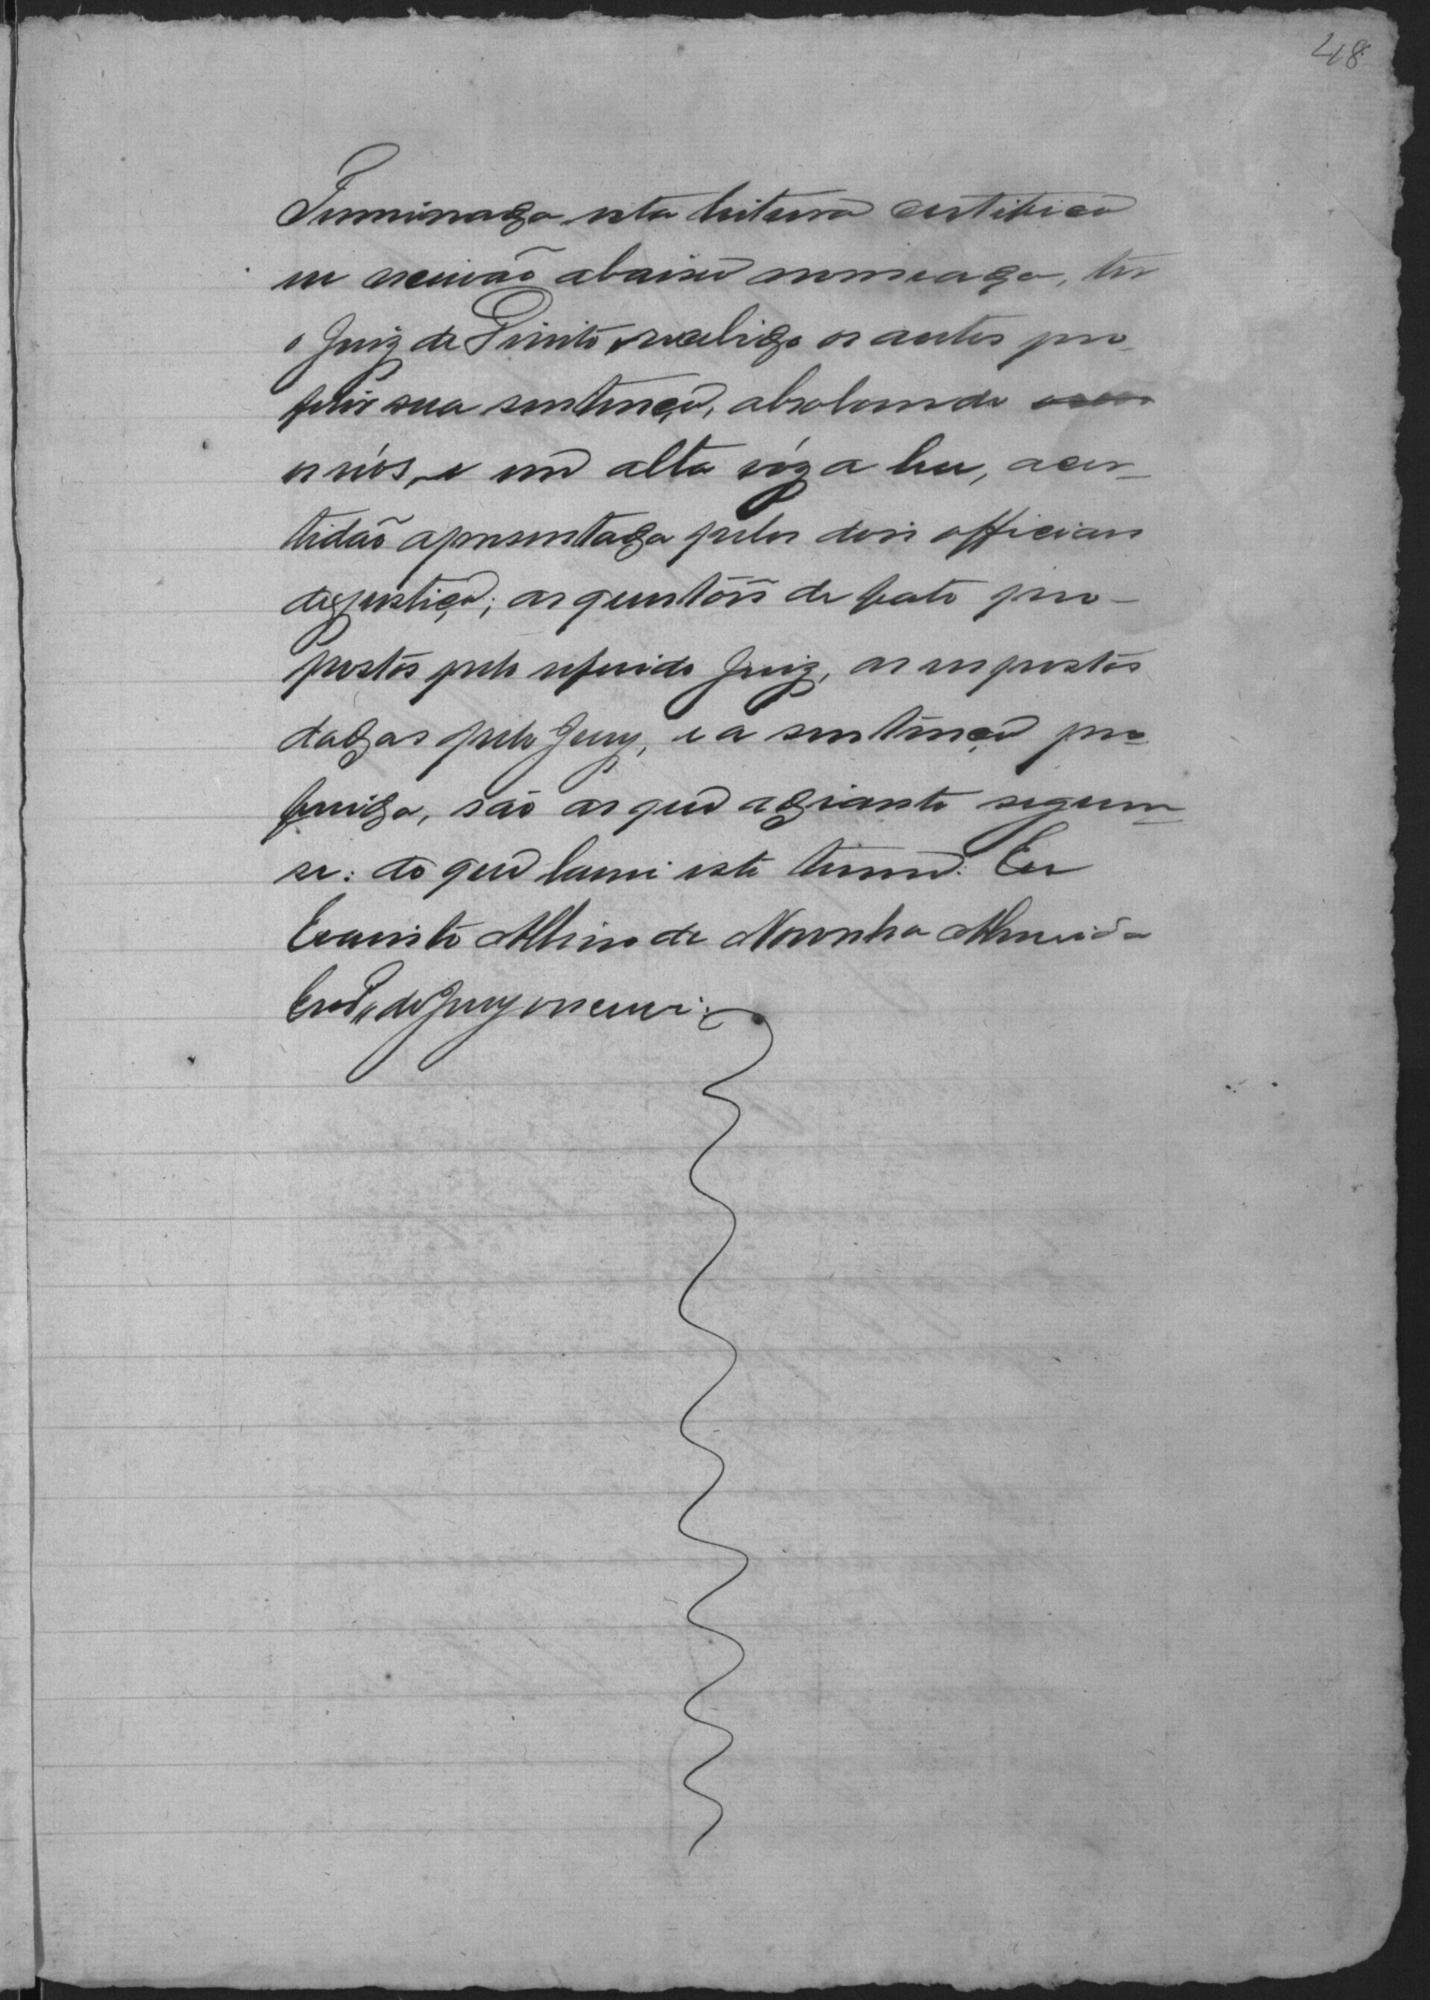 48
Terminada esta leitura certifico
eu escrivão abaixo nomeado, ter
o Juiz de Direito recebido os autos pro
ferir sua sentença, absolvendo
os réos, e em alta vóz a leu, a cer-
tidão apresentada pelos dois officiaes
de justiça; as questões de facto pro-
postas pelo referido Juiz, as respostas
dadas pelo Jury, e a sentença pro
ferida, são as que adiante seguem
se: do que lavrei este termo. Eu
Evaristo Albino de Noronha Almeida
do Jury o escrevi.